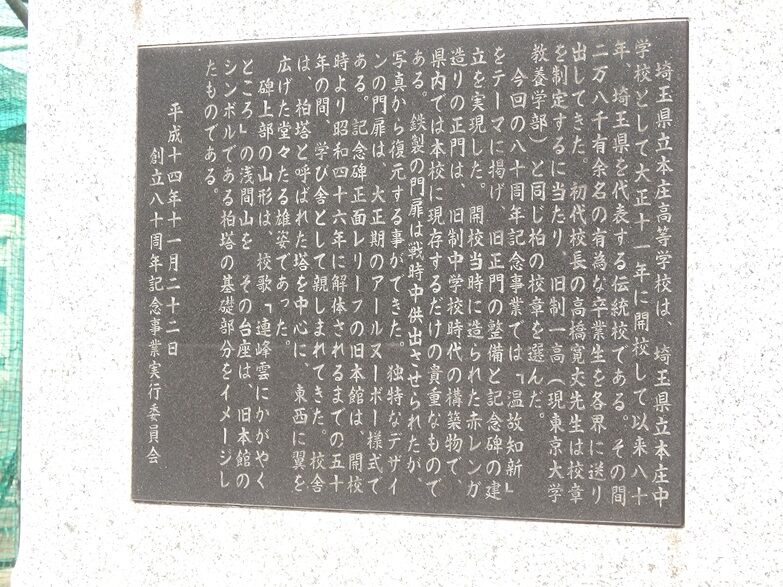 埼玉県立本庄高等学校は、埼玉県立本庄中
学校として大正十一年に開校して以来八十
年、埼玉県を代表する伝統校である。その間
二万八千有余名の有為な卒業生を各界に送り
出してきた。初代校長の高橋寛丈先生は校章
を制定するに当たり、旧制一高（現東京大学
教養学部）と同じ柏の校章を選んだ。
今回の八十周年記念事業では「温故知新」
をテーマに掲げ、旧正門の整備と記念碑の建
立を実現した。開校当時に造られた赤レンガ
造りの正門は、旧制中学校時代の構築物で、
県内では本校に現存するだけの貴重なもので
ある。鉄製の門扉は戦時中供出させられたが、
写真から復元する事ができた。独特なデザイ
ンの門扉は、大正期のアールヌーボー様式で
ある。記念碑正面レリーフの旧本館は、開校
時より昭和四十六年に解体されるまでの五十
年の間、学び舎として親しまれてきた。校舎
は、柏塔と呼ばれた塔を中心に、東西に翼を
広げた堂々たる雄姿であった。
碑上部の山形は、校歌「連峰雲にかがやく
ところ」の浅間山を、その台座は、旧本館の
シンボルである柏塔の基礎部分をイメージし
たものである。
平成十四年十一月二十二日
創立八十周年記念事業実行委員会